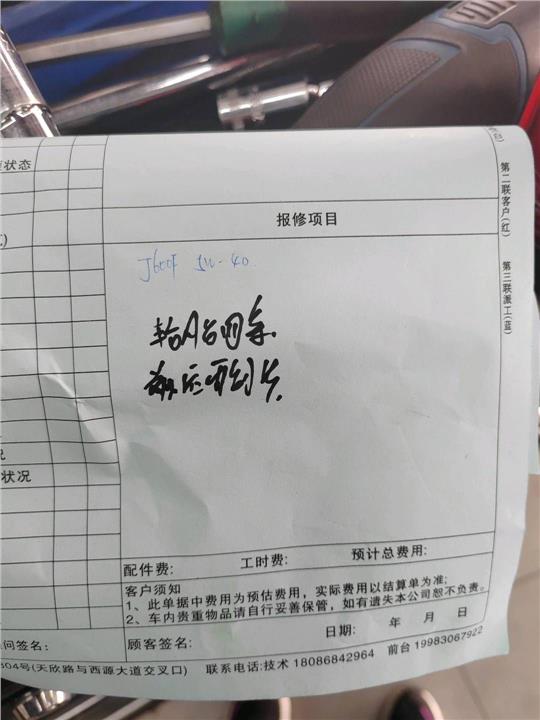 状态
报修项目
第二联客户(红)
第三联派工(蓝)
5W-40
轮胎四条
前后刹片
状况
配件费:
工时费:
预计总费用:
客户须知
1、此单据中费用为预估费用，实际费用以结算单为准;
2、车内贵重物品请自行妥善保管，如有遗失本公司恕不负责。
日期: 年 月 日
问签名:
顾客签名:
304号(天欣路与西源大道交叉口) 联系电话:技术 18086842964 前台 19983067922